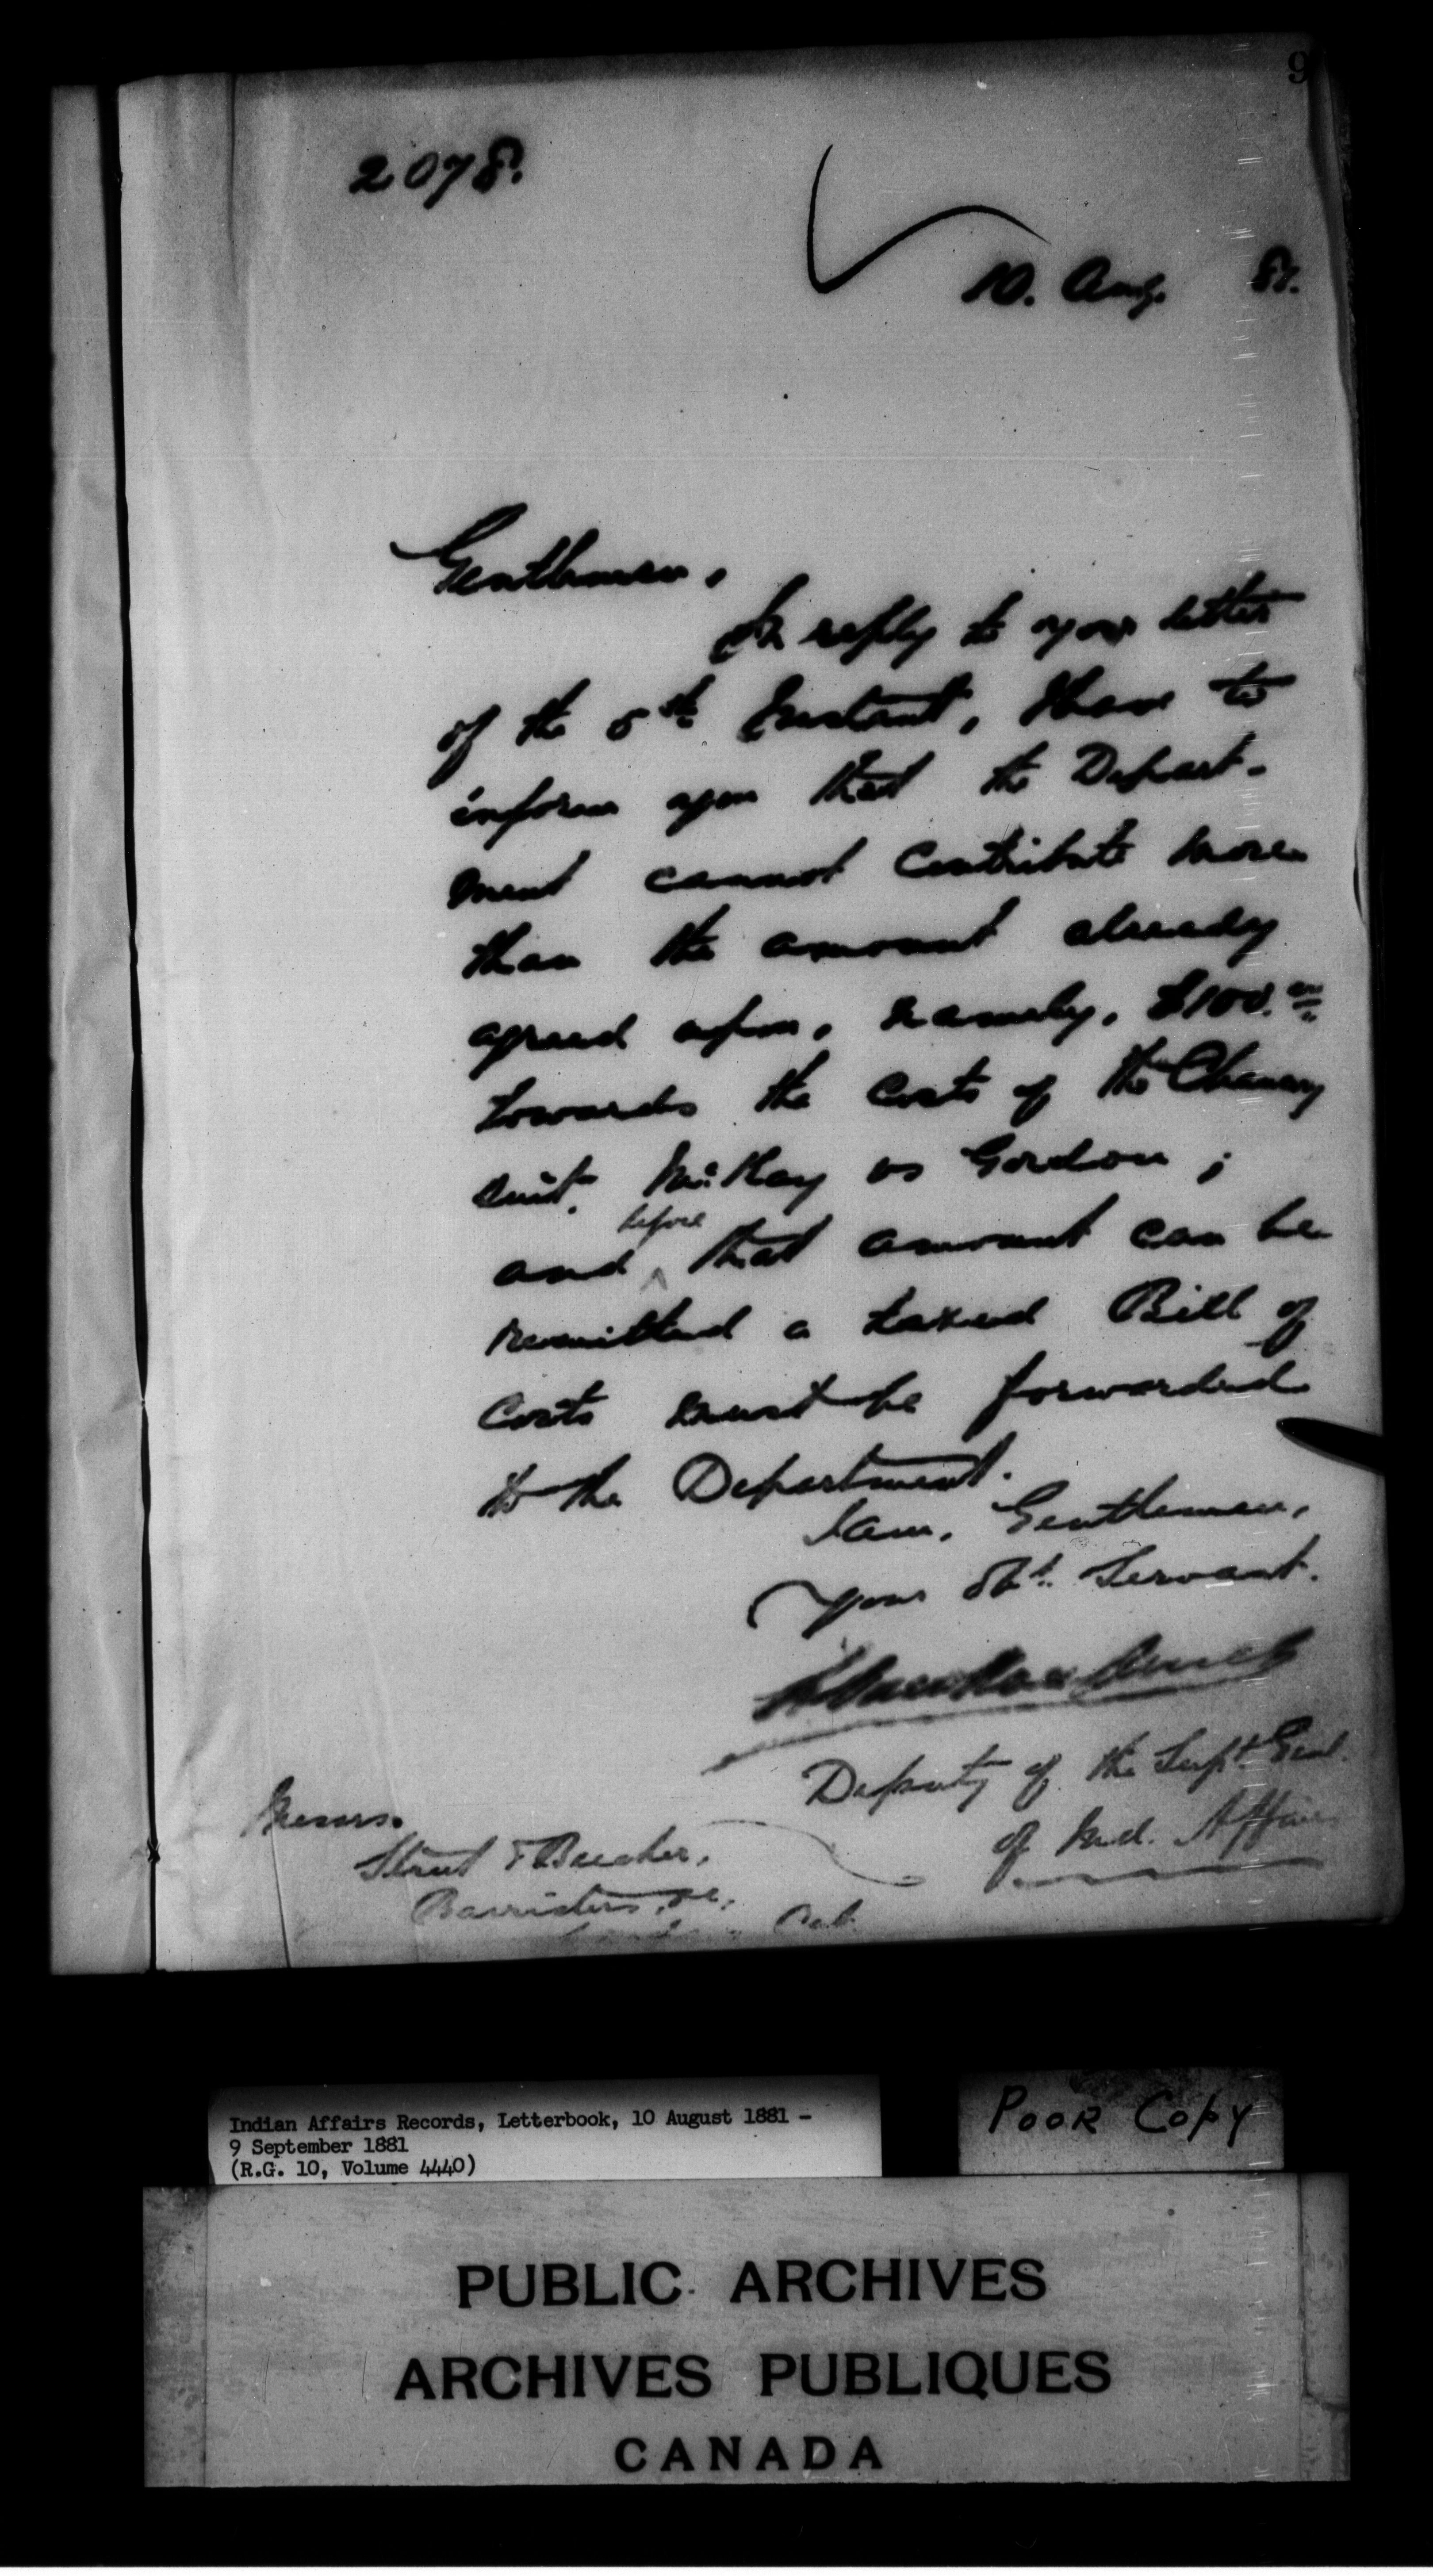 9
2078.
10. Aug. 81.
Gentlemen,
In reply to your letter
of the 5th Instant, I have to
inform you that the Depart-
ment cannot contribute more
than the amount already
agreed upon, namely, $100.00
towards the costs of the Chancery
suit, McKay vs Gordon ;
before
and ^ that amount can be
remitted a taxed Bill of
costs must be forwarded
to the Department.
I am, Gentlemen,
Your Obt. Servant.
Deputy of the Supt. Genl.
of Ind. Affairs
Messrs.
Street & Beecher,
Barristers, &c,
Indian Affairs Records, Letterbook, 10 August 1881 -
9 September 1881
(R.G. 10, Volume 4440)
POOR COPY
PUBLIC ARCHIVES
ARCHIVES PUBLIQUES
CANADA